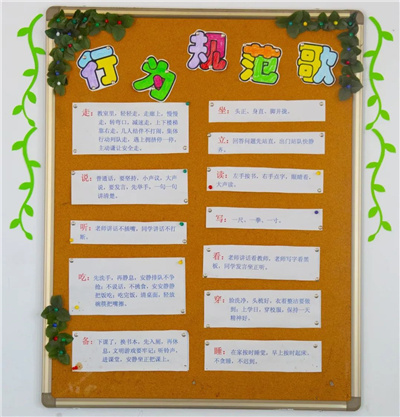 行为规范歌
走：教室里，轻轻走，走廊上，慢慢
走，转弯口，减速走，上下楼梯
靠右走，几人结伴不打闹，集体
行动列队走，遇上拥挤停一停，
主动谦让安全走。
说：普通话，要坚持，小声说，大声
说，要发言，先举手，一句一句
讲清楚。
听：老师讲话不插嘴，同学讲话不打
断。
吃：先洗手，再静息，安安静静排队不争
抢；不说话，不挑食，安安静静
把饭吃；吃完饭，清桌面，轻放
碗筷把嘴擦。
备：下课了，换书本，先入厕，再休
息，文明游戏要牢记；听铃声，
进课堂，安静坐正把课上。
坐：头正，身直，脚并拢。
立：回答问题先站直，出门站队快静
齐。
读：左手按书，右手点字，眼睛看，
大声读。
写：一尺、一拳、一寸。
看：老师讲话看教师，老师写字看黑
板，同学发言坐正听。
穿：脸洗净，头梳好，衣着整洁要做
到；上学日，穿校服，保持一天
精神好。
睡：在家按时睡觉，早上按时起床，
不贪睡，不迟到。